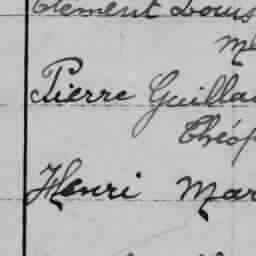 Clément Louis
Pierre Guilla
Théop
Henri Mar